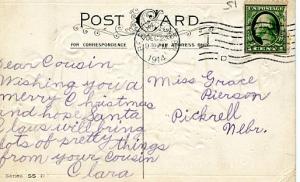 51
POST CARD
FOR CORRESPONDENCE
FOR ADDRESS ONLY
1914
1 CENT 1
Dear Cousin
Wishing you a
merry Christmas
and hope Santa
Claus will bring
lots of pretty things
from your cousin
Clara
Miss Grace
Pierson
Pickrell
Nebr.
Series 55